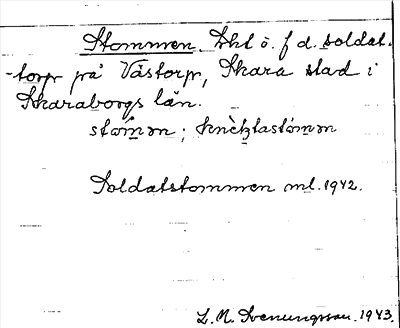 Stommen. Lht ö. f d. soldat-
-torp på Västorp, Skara stad i
Skaraborgs län.
ståm̀m; knèktaståm̀m
Soldatstommen ml. 1942.
L. N. Svenungsson. 1943.